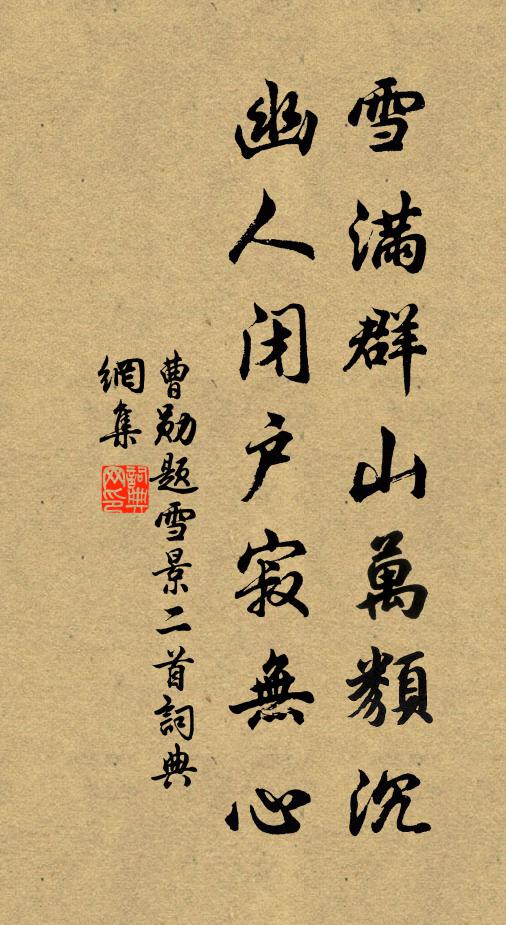 雪滿群山萬類沉
幽人闭户寂無心
曹勋题雪景二首詞典
網集
詞典网印